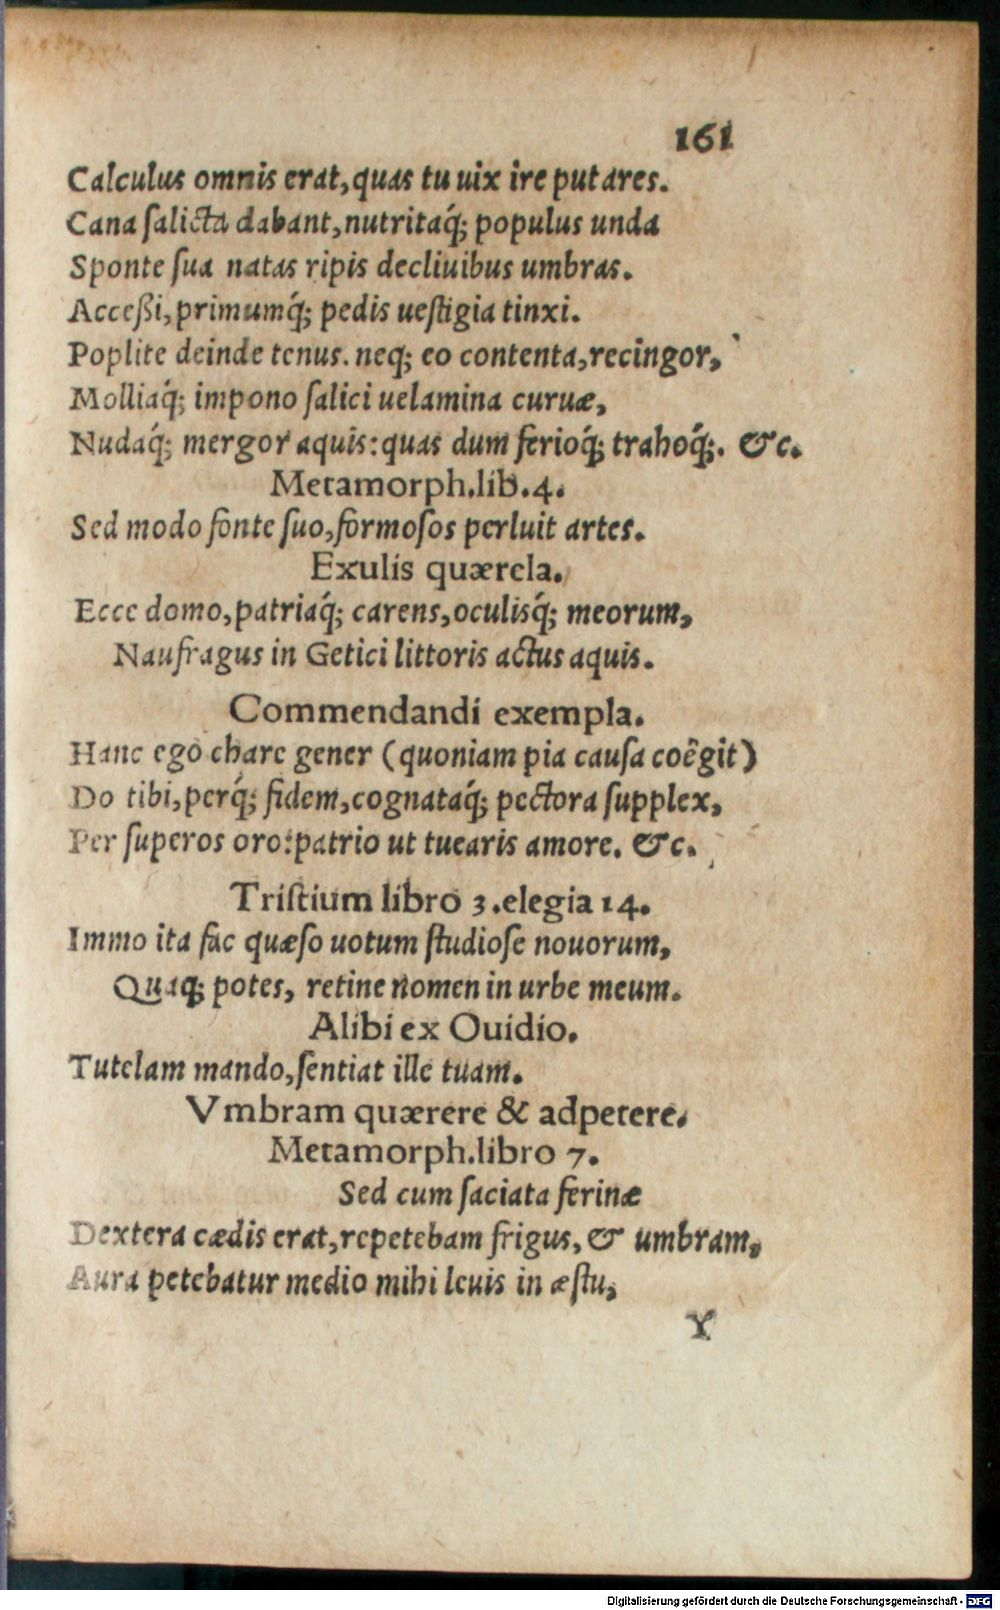 161
Calculus omnis erat,quas tu uix ire putares.
Cana ſalicta dabant,nutritaq́; populus unda
Sponte ſua natas ripis decliuibus umbras.
Acceßi,primumq́; pedis ueſtigia tinxi.
Poplite deinde tenus. neq; eo contenta,recingor,
Molliaq́; impono ſalici uelamina curuæ,
Nudaq́; mergor aquis:quas dum ferioq́; trahoq́;. &c.
Metamorph.lib.4.
Sed modo fonte ſuo,formoſos perluit artes.
Exulis quærela.
Ecce domo,patriaq́; carens,oculisq́; meorum,
Naufragus in Getici littoris actus aquis.
Commendandi exempla.
Hanc ego chare gener (quoniam pia cauſa coëgit)
Do tibi,perq́; fidem,cognataq́; pectora ſupplex,
Per ſuperos oro:patrio ut tuearis amore. &c.
Triſtium libro 3.elegia 14.
Immo ita fac quæſo uotum ſtudioſe nouorum,
Quaq; potes, retine nomen in urbe meum.
Alibi ex Ouidio.
Tutelam mando,ſentiat ille tuam.
Vmbram quærere & adpetere.
Metamorph.libro 7.
Sed cum ſaciata ferinæ
Dextera cædis erat,repetebam frigus, & umbram,
Aura petebatur medio mihi leuis in æſtu,
Y
Digitalisierung gefördert durch die Deutsche Forschungsgemeinschaft - DFG